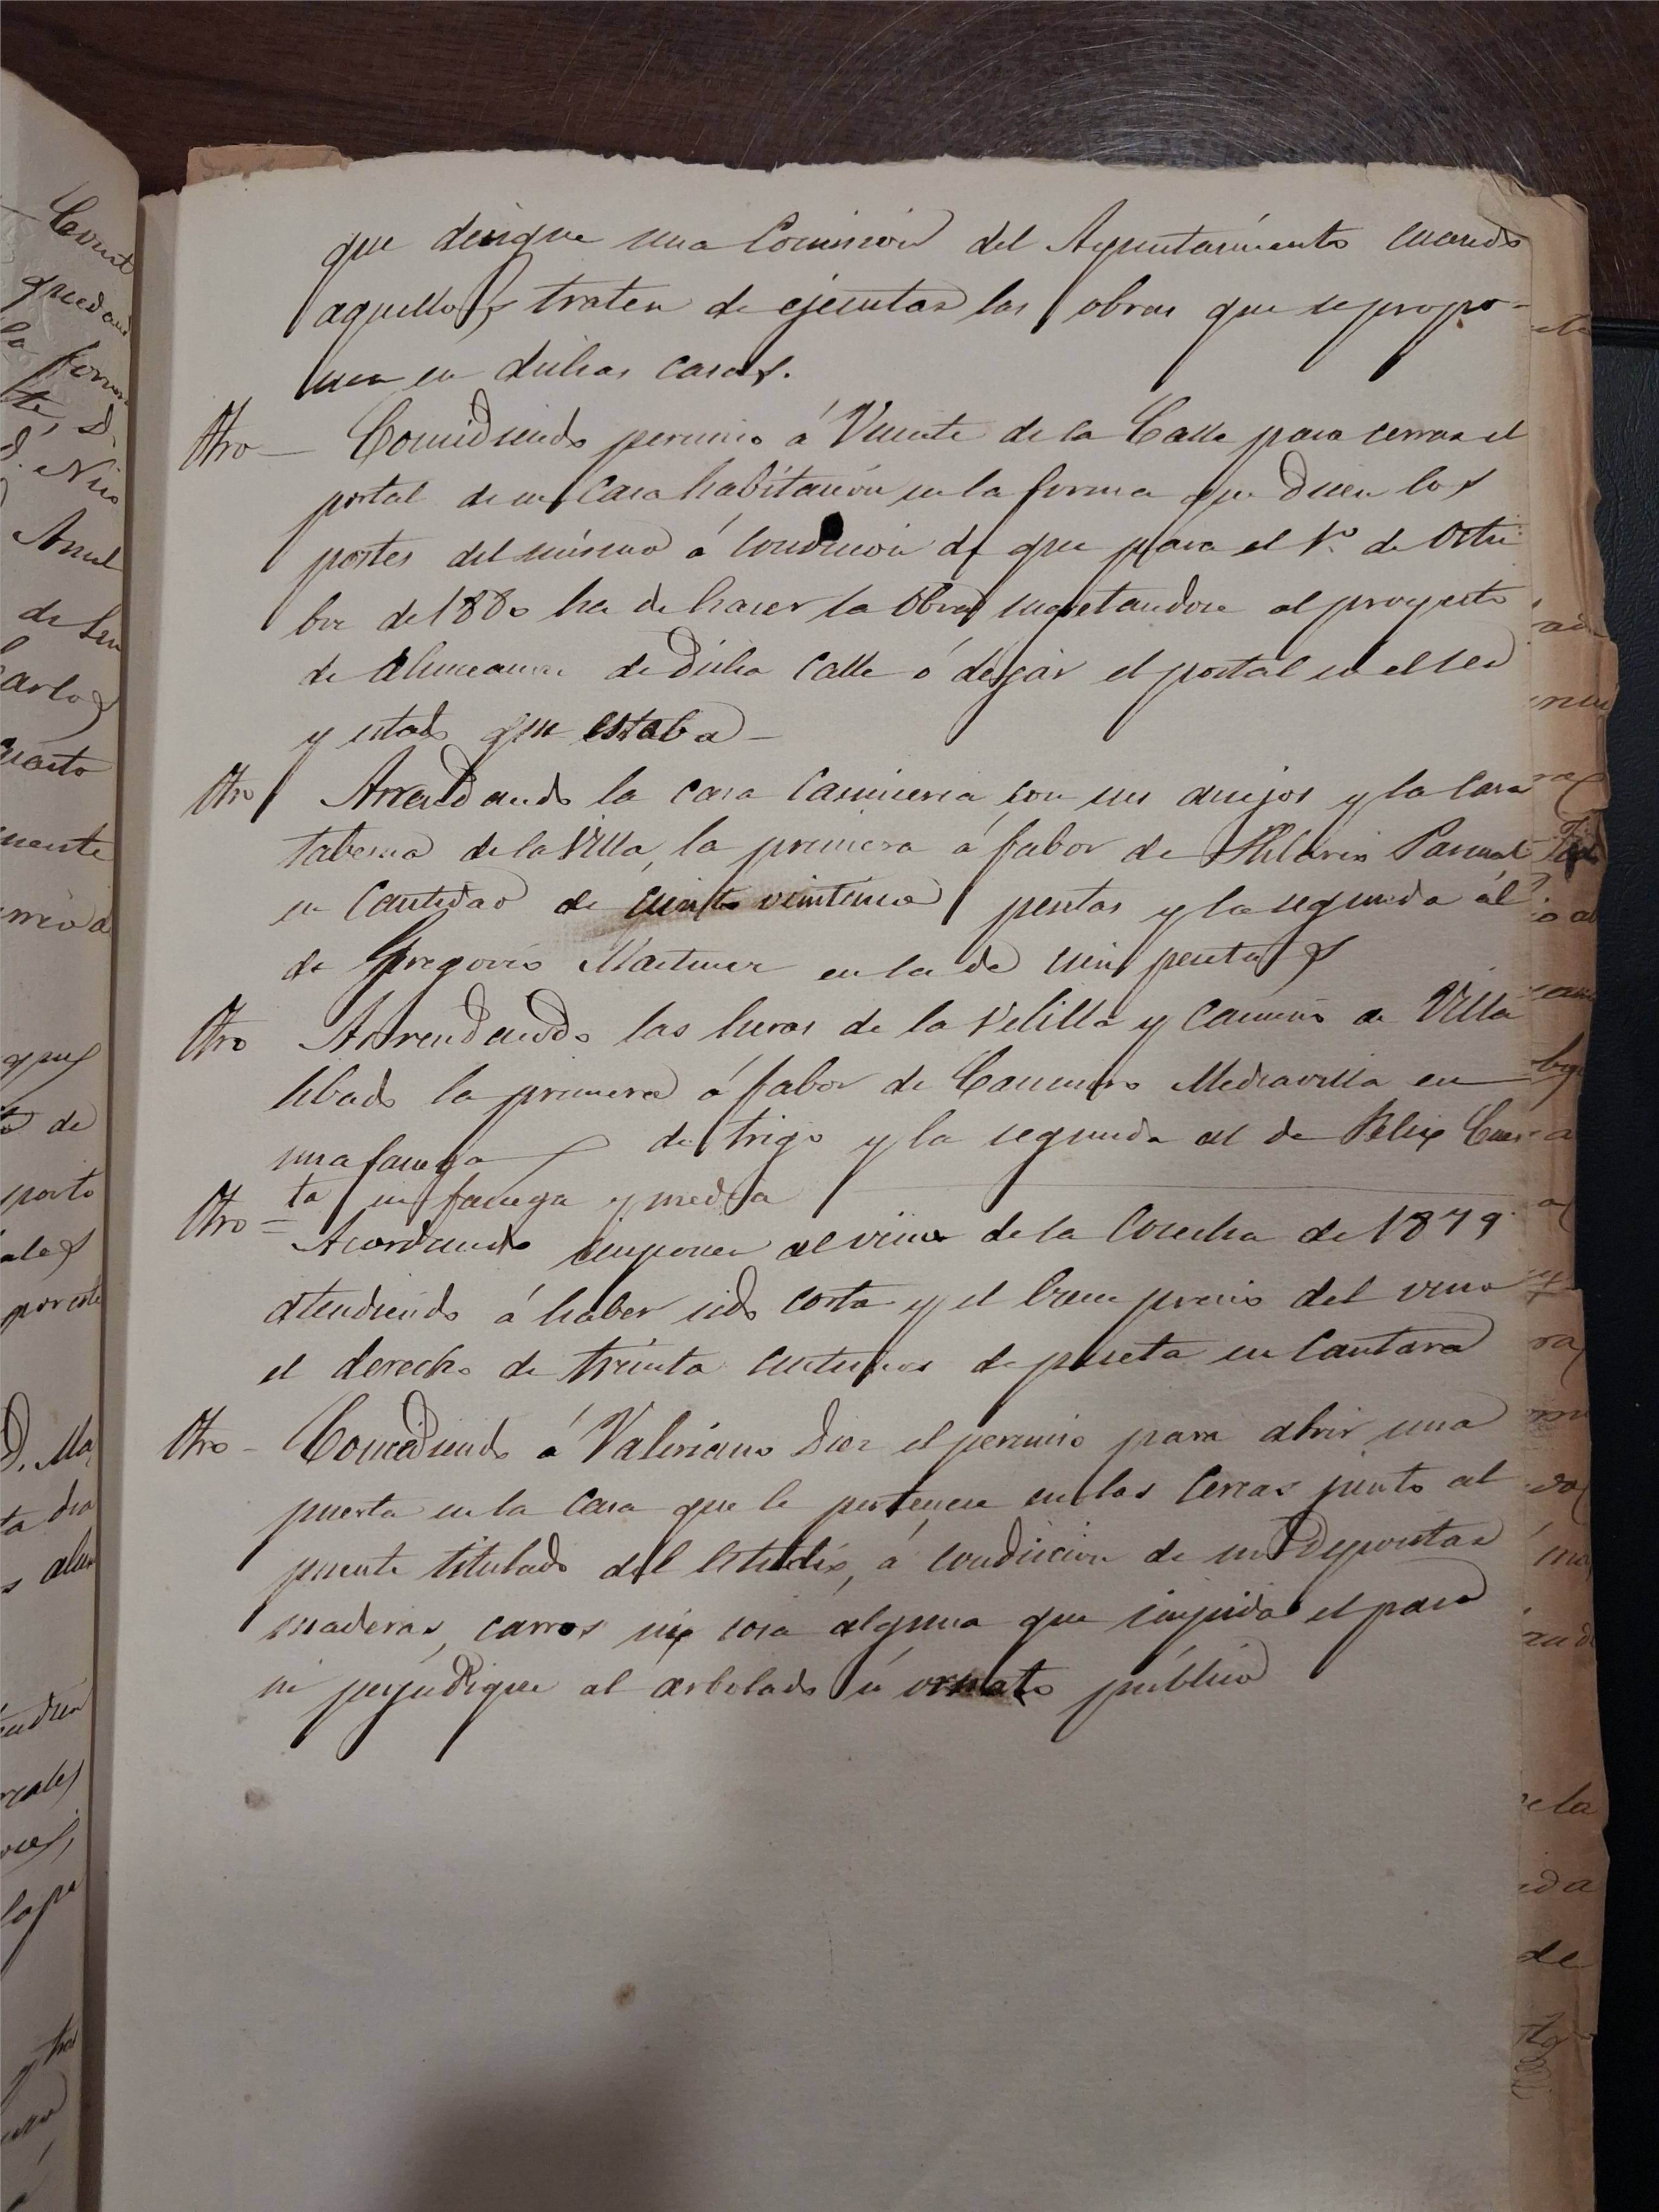 que designe una Comision del Ayuntamiento cuando
aquellos traten de ejecutar las obras que se propo-
nen en dichas casas.
Otro — Concediendo permiso á Vicente de la Calle para cerrar el
portal de su casa habitación en la forma que dicen los
postes del mismo á condicion de que para el 1º de Octu
bre de 1880 ha de hacer la obra sugetandose al proyecto
de alineacion de dicha calle ó dejar el portal en el ser
y estado que estaba —
Otro Arrendando la casa Carniceria con sus anejos y la casa
taberna de la Villa, la primera á fabor de Hilario Pascual
en cantidad de ciento veinticinco pesetas y la segunda al
de Gregorio Martinez en la de cien pesetas
Otro Arrendando las heras de la Velilla y Camino de Villa
lbado la primera á fabor de Mediavilla en
una fanega de trigo y la segunda al de Felix Cues
ta en fanega y media
Otro = Acordando imponer al vino de la Cosecha de 1879
atendiendo á haber sido corta y el buen precio del vino
el derecho de treinta centimos de peseta en Cantara
Otro - Concediendo á Valeriano Diez el permiso para abrir una
puerta en la casa que le pertenece en las Cercas junto al
puente titulado del , á condicion de no depositar
maderas, carros ni cosa alguna que impida el paso
ni perjudique al arbolado ú ornato público